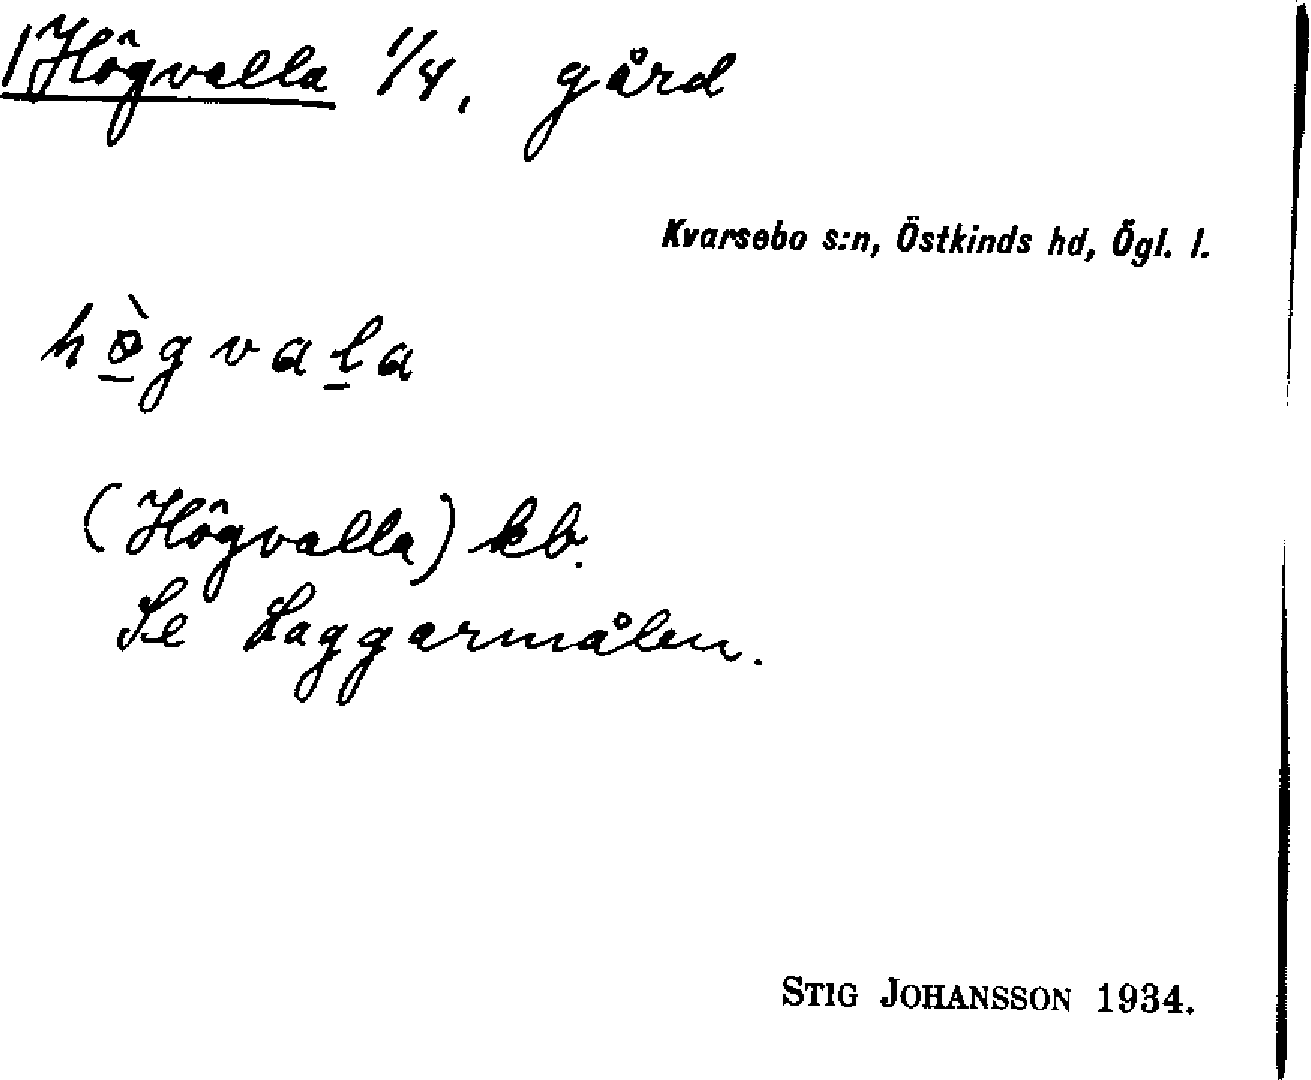 Högvalla 1/4, gård
Kvarsebo s:n, Östkinds hd, Ögl. l.
hø̀gvala
(Högvalla) kb.
Se Laggarmålen.
STIG JOHANSSON 1934.